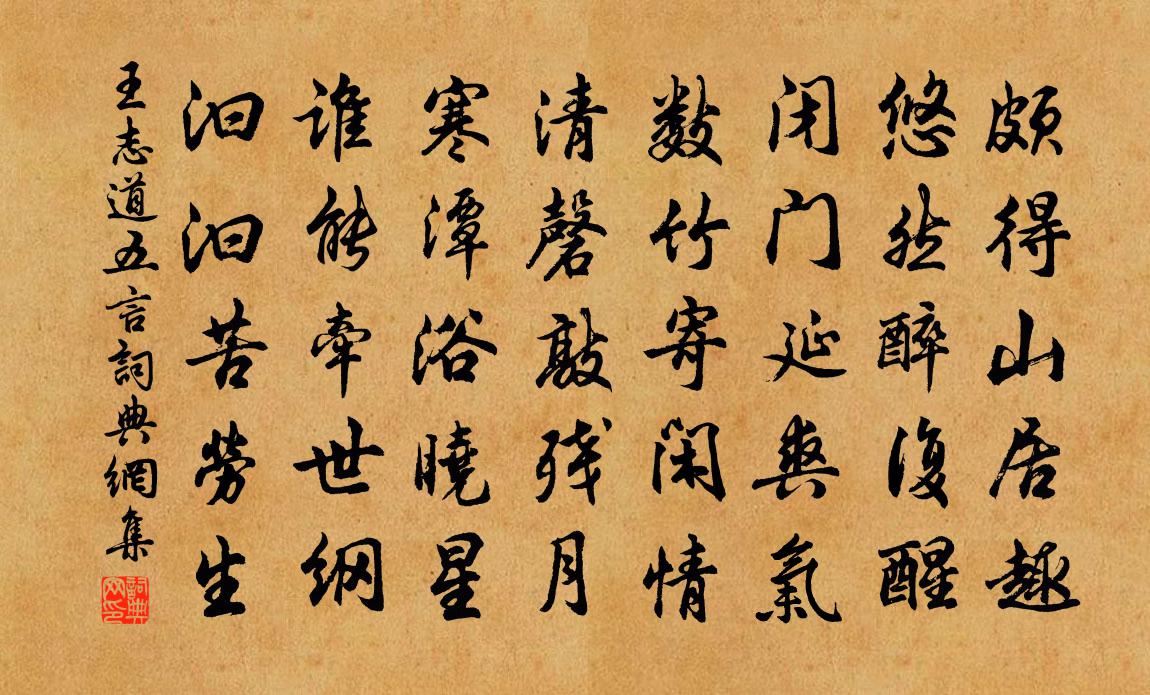 颇得山居趣
悠然醉復醒
闭门延爽氣
数竹寄闲情
清磬敲残月
寒潭浴曉星
谁能牵世纲
汩汩苦劳生
王志道五言詞典網集
詞典
网印